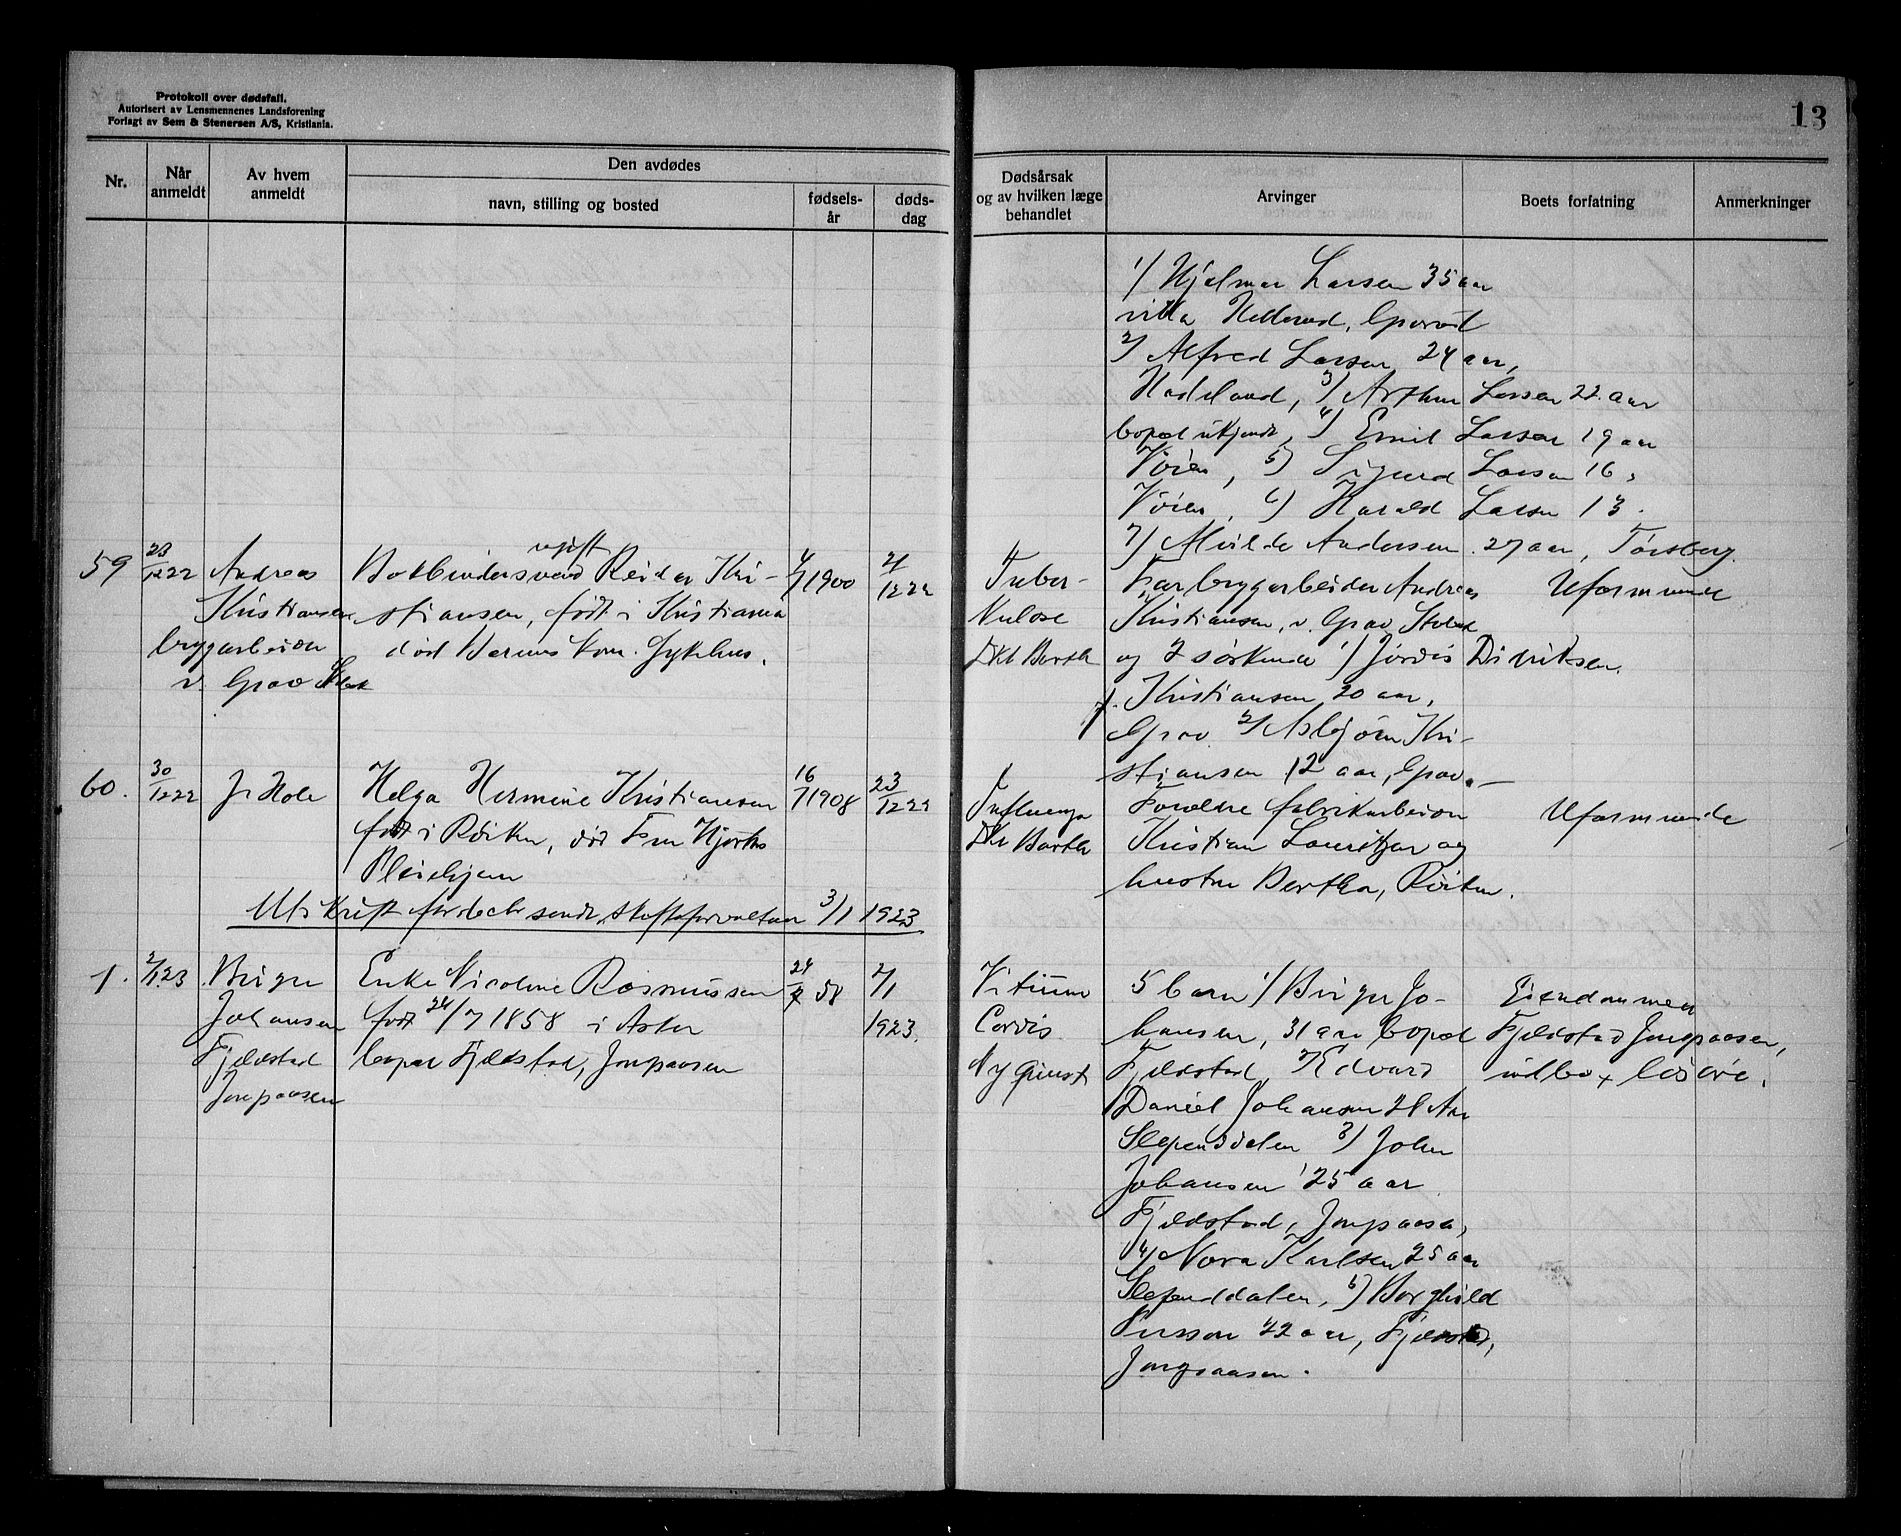 Protokoll over dødsfall.
Autorisert av Lensmennenes Landsforening
Forlagt av Sem & Stenersen A/S, Kristiania.
13
Nr.
Når anmeldt
Av hvem anmeldt
Den avdødes
navn, stilling og bosted
fødsels-år
døds-dag
Dødsårsak
og av hvilken læge
behandlet
Arvinger
Boets forfatning
Anmerkninger
1) Hjalmar Larsen 35 aar
villa
2) Alfred Larsen 24 aar,
Hadeland, 3) Arthur Larsen 22 aar
bopæl ukjendt, 4) Emil Larsen 19 aar
Vøien, 5) Sigurd Larsen 16,
Vøien, 6) Harald Larsen 13.
7) Alvilde Andersen 27 aar,
59 23/12 22 Andreas
Kristiansen
bryggarbeider
v. Grav
ugift
Bokbindersvend Reidar Kri-
stiansen, født i Kristiania
død Bærums kom. Sykehus.
1900
12 22
Tuber-
kulose
Dr Barth
Far bryggarbeider Andreas
Kristiansen, v. Grav
og 2 søskende 1) Jordis Diriksen
f. Kristiansen 20 aar,
Grav 2) Asbjørn Kri-
stiansen 12 aar, Grav.
Uformuende
60. 30/12 22 J. Hole
Helga Hermine Kristiansen
født i Røiken, død Fru Hjorths
Pleiehjem
16/7 1908
23/12 22
Influenza
Dr Barth
Forældre fabrikarbeider
Kristian Lauritzen og
hustru Bertha, Røiken.
Uformuende
Utskrift for decbr sendt skifteforvalteren 3/1 1923
1. 2/1 23 Birger
Johansen
Fjeldstad
Jongsaasen
Enke Nicoline Rasmussen
født 24/7 1858 i Asker
bopæl Fjeldstad, Jongsaasen
24/7 58
2/1
1923.
Vitium
Cordis
Nyquist
5 barn 1) Birger Jo-
hansen, 31 aar bopæl
Fjeldstad, 2) Edvard
Daniel Johansen 28 Aar
Slependdalen 3) John
Johansen 25 aar
Fjeldstad, Jongsaasen,
4) Nora Karlsen 25 aar
Slependdalen, 5) Borghild
22 aar, Fjeldstad,
Jongsaasen.
Eiendommen
Fjeldstad Jongsaasen,
indbo + løsøre.